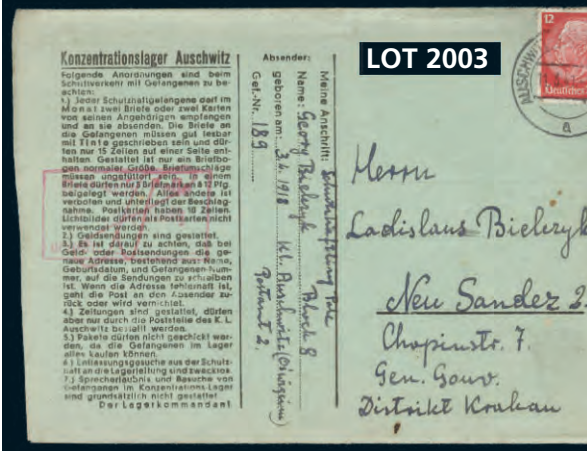 LOT 2003
12
Konzentrationslager Auschwitz
Folgende Anordnungen sind beim
Schriftverkehr mit Gefangenen zu be-
achten:
1.) Jeder Schutzhaftgefangene darf im
Monat zwei Briefe oder zwei Karten
von seinen Angehörigen empfangen
und an sie absenden. Die Briefe an
die Gefangenen müssen gut lesbar
mit Tinte geschrieben sein und dür-
fen nur 15 Zeilen auf einer Seite ent-
halten. Gestattet ist nur ein Briefbo-
gen normaler Größe. Briefumschläge
müssen ungefüttert sein. In einem
Briefe dürfen nur 5 Briefmarken à 12 Pfg.
beigelegt werden. Alles andere ist
verboten und unterliegt der Beschlag-
nahme. Postkarten haben 10 Zeilen.
Lichtbilder dürfen als Postkarten nicht
verwendet werden.
2.) Geldsendungen sind gestattet.
3.) Es ist darauf zu achten, daß bei
Geld- oder Postsendungen die ge-
naue Adresse, bestehend aus: Name,
Geburtsdatum, und Gefangenen-Num-
mer, auf die Sendungen zu schreiben
ist. Wenn die Adresse fehlerhaft ist,
geht die Post an den Absender zu-
rück oder wird vernichtet.
4.) Zeitungen sind gestattet, dürfen
aber nur durch die Poststelle des K. L.
Auschwitz bestellt werden.
5.) Pakete dürfen nicht geschickt wer-
den, da die Gefangenen im Lager
alles kaufen können.
6.) Entlassungsgesuche aus der Schutz-
haft an die Lagerleitung sind zwecklos.
7.) Sprecherlaubnis und Besuche von
Gefangenen im Konzentrations-Lager
sind grundsätzlich nicht gestattet.
Der Lagerkommandant
Absender:
Meine Anschrift: Schutzhäftling Pole
Name: Georg Bielczyk Block 8
geboren am: 3.4.1918 Kl. Auschwitz (Oświęcim)
Gef.-Nr. 189 Postamt 2.
AUSCHWITZ
a
Deutsches
Herrn
Ladislaus Bielczyk
Neu Sandez 2.
Chopinstr. 7.
Gen. Gouv.
Distrikt Krakau